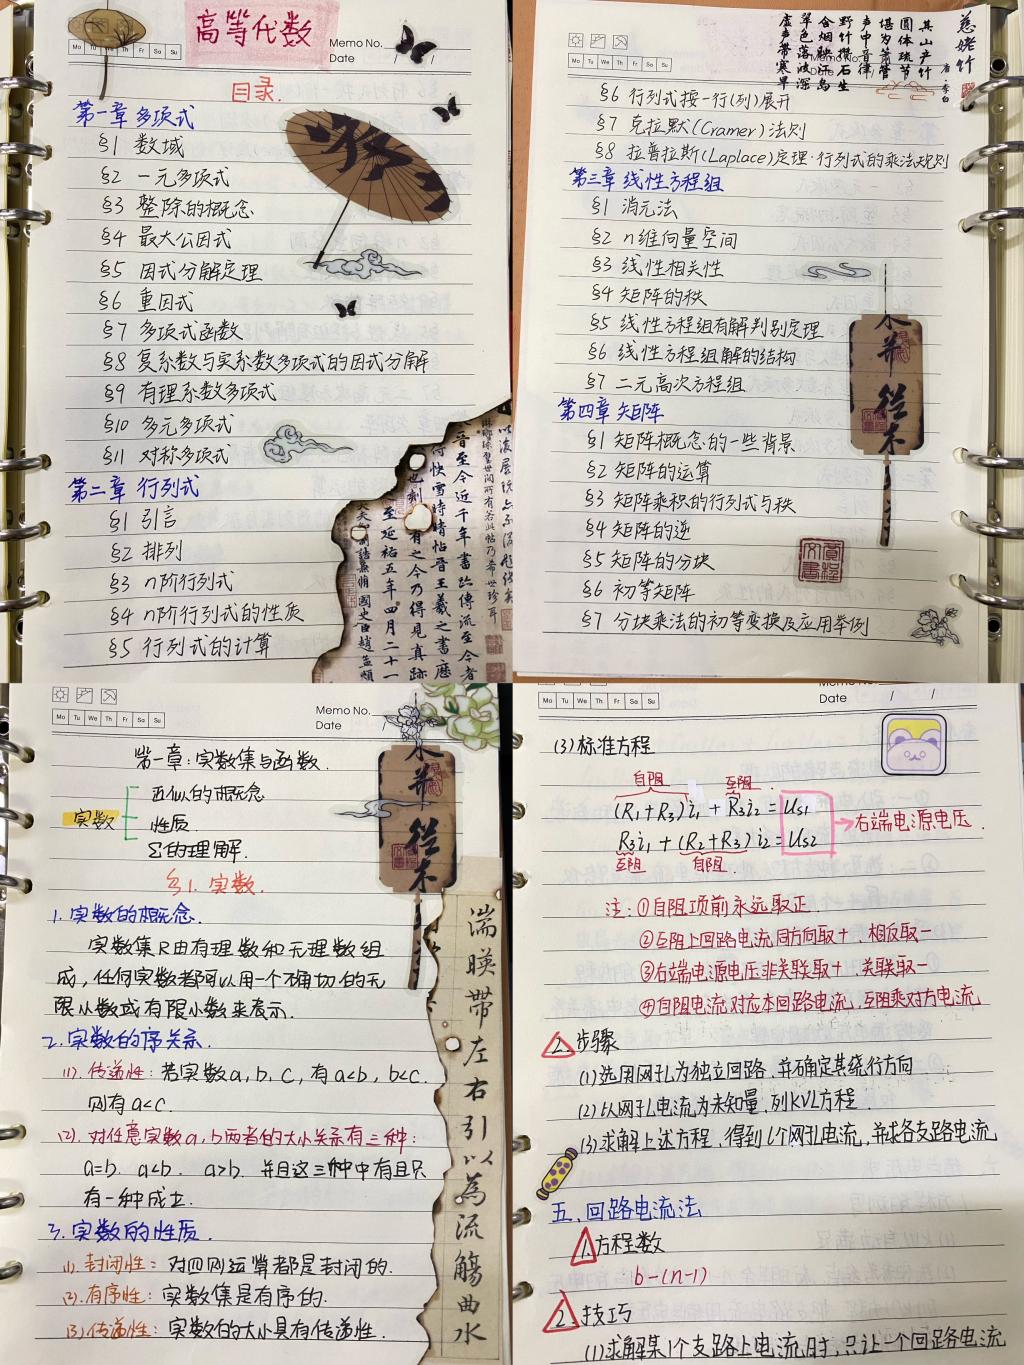 高等代数
Mo Tu We Th Fr Sa Su
Memo No.
Date / /
目录.
第一章 多项式
§1 数域
§2 一元多项式
§3 整除的概念
§4 最大公因式
§5 因式分解定理
§6 重因式
§7 多项式函数
§8 复系数与实系数多项式的因式分解
§9 有理系数多项式
§10 多元多项式
§11 对称多项式
第二章 行列式
§1 引言
§2 排列
§3 n阶行列式
§4 n阶行列式的性质
§5 行列式的计算
慈姥竹
唐·李白
其山产竹
圆体疏节
堪为箫管
声中音律
野竹攒石生
含烟映江岛
翠色落波深
虚声带寒早
Mo Tu We Th Fr Sa Su
§6 行列式按一行(列)展开
§7 克拉默(Cramer)法则
§8 拉普拉斯(Laplace)定理·行列式的乘法规则
第三章 线性方程组
§1 消元法
§2 n维向量空间
§3 线性相关性
§4 矩阵的秩
§5 线性方程组有解判别定理
§6 线性方程组解的结构
§7 二元高次方程组
第四章 矩阵
§1 矩阵概念的一些背景
§2 矩阵的运算
§3 矩阵乘积的行列式与秩
§4 矩阵的逆
§5 矩阵的分块
§6 初等矩阵
§7 分块乘法的初等变换及应用举例
Mo Tu We Th Fr Sa Su
Memo No.
Date
第一章:实数集与函数.
实数
近似的概念
性质.
Σ的理解.
§1. 实数.
1. 实数的概念.
实数集R由有理数和无理数组
成,任何实数者都可以用一个不确切的无
限小数或有限小数来表示.
2. 实数的序关系.
(1). 传递性:若实数a,b,c,有a<b,b<c.
则有a<c.
(2). 对任意实数a,b两者的大小关系有三种:
a=b. a<b. a>b. 并且这三种中有且只
有一种成立.
3. 实数的性质.
(1). 封闭性:对四则运算都是封闭的.
(2). 有序性:实数集是有序的.
(3). 传递性:实数的大小具有传递性.
湍暎带左右引以為流觴曲水
Mo Tu We Th Fr Sa Su
Memo No.
Date / /
(3)标准方程
自阻 互阻.
(R1+R3)i1 + R3i2 = Us1
R3i1 + (R2+R3)i2 = Us2
→右端电源电压.
互阻 自阻.
注:①自阻项前永远取正.
②互阻上回路电流同方向取+、相反取-
③右端电源电压非关联取+、关联取-
④自阻电流对应本回路电流,互阻乘对方电流
2. 步骤
(1)选用网孔为独立回路,并确定其绕行方向
(2)以网孔电流为未知量,列KVL方程.
(3)求解上述方程,得到l个网孔电流,并求各支路电流
五.回路电流法
1. 方程数
b-(n-1)
2. 技巧
(1)求解某1个支路上电流时,只让一个回路电流